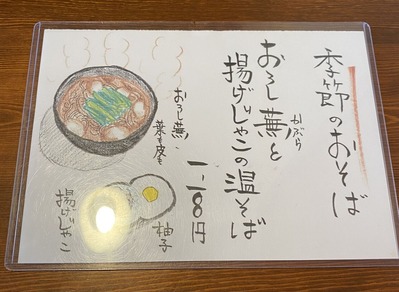 季節のおそば
おろし蕪と
かぶら
揚げじゃこの温そば
一一八〇円
おろし蕪、
葉も皮も
柚子
揚げじゃこ